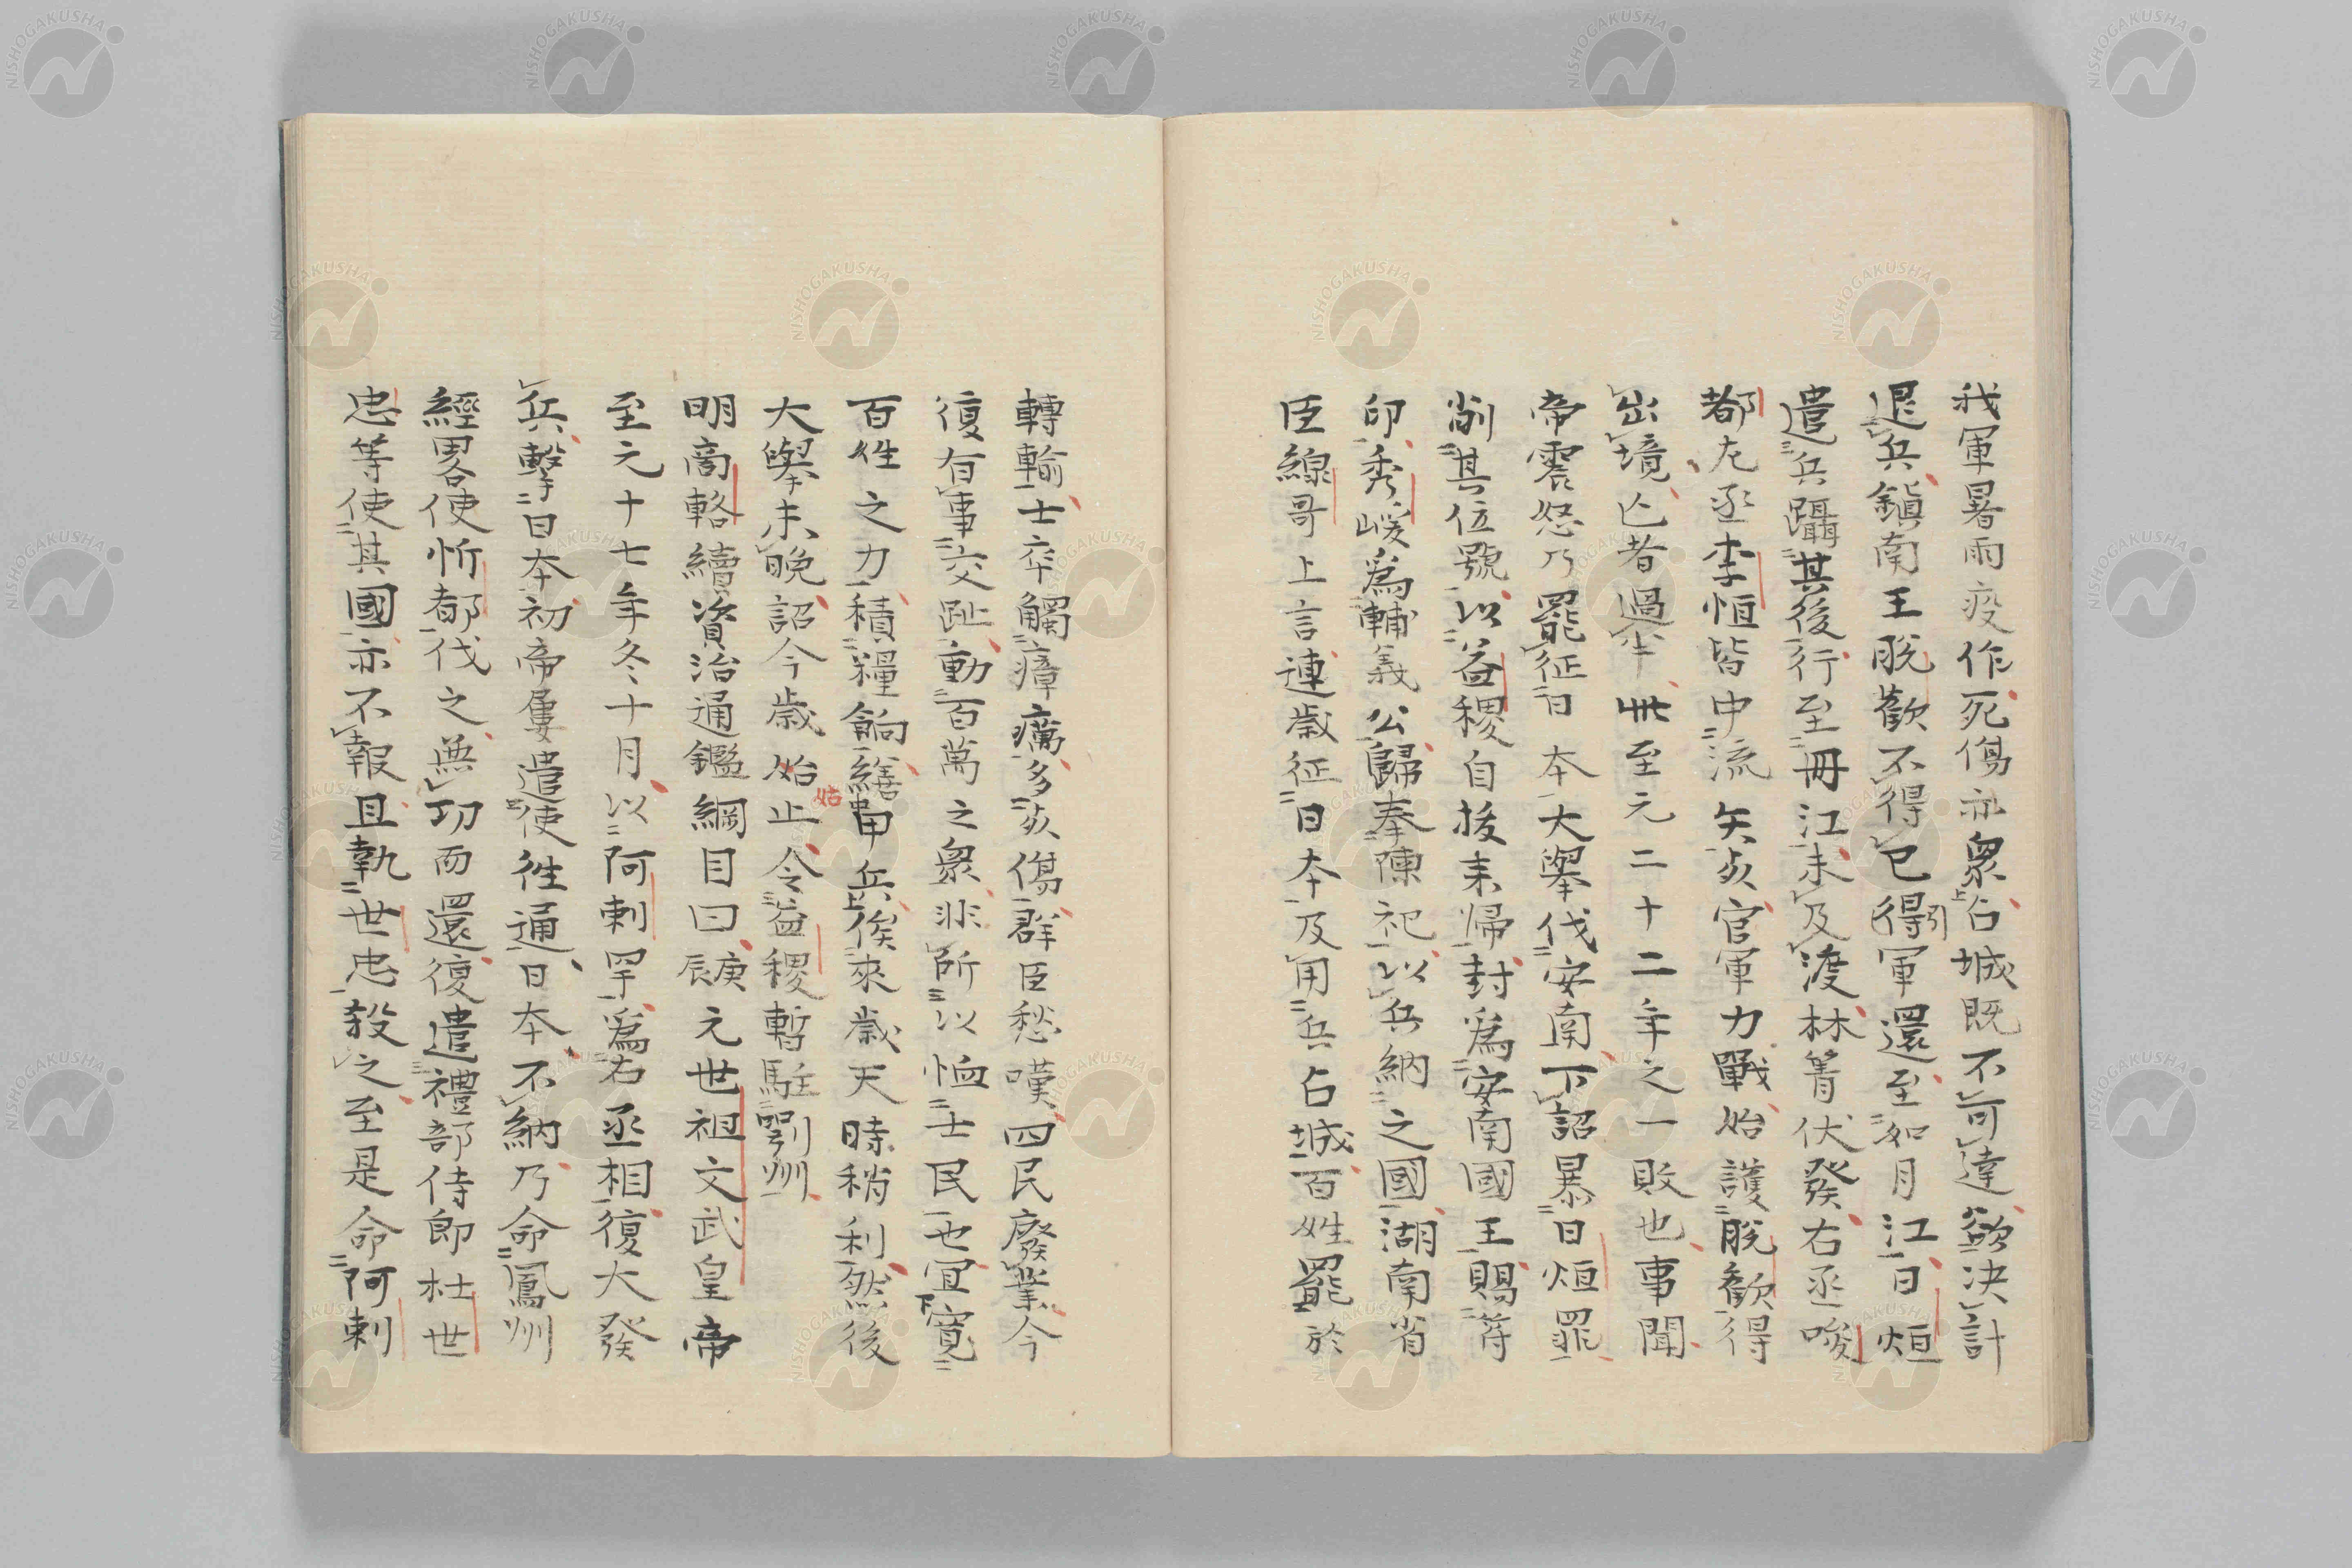 我軍暑雨疫作死傷亦衆占城既不可達欲决計
退兵鎮南王脱歡不得已得引軍還至如月江日烜
遣兵躡其後行至冊江未及渡林箐伏發右丞唆
都左丞李恒皆中流矢死官軍力戰始護脱歡得
出境亡者過半此至元二十二年之一敗也事聞
帝震怒乃罷征日本大舉伐安南下詔暴日烜罪
削其位號以益稷自拔来帰封爲安南國王賜符
印秀嵈爲輔義公歸奉陳祀以兵納之國湖南省
臣線哥上言連歳征日本及用兵占城百姓罷於
轉輸士卒觸瘴癘多死傷群臣愁嘆四民廢業今
復有事交趾動百萬之衆非所以恤士民也宜寛
百姓之力積糧餉繕甲兵俟來歳天時稍利然後
大舉未晩詔今歳始止令益稷暫駐鄂州
始
明商輅續資治通鑑綱目曰庚辰元世祖文武皇帝
至元十七年冬十月以阿剌罕爲右丞相復大發
兵擊日本初帝屢遣使徃通日本不納乃命鳳州
經畧使忻都伐之無功而還復遣禮部侍郎杜世
忠等使其國亦不報且執世忠殺之至是命阿剌